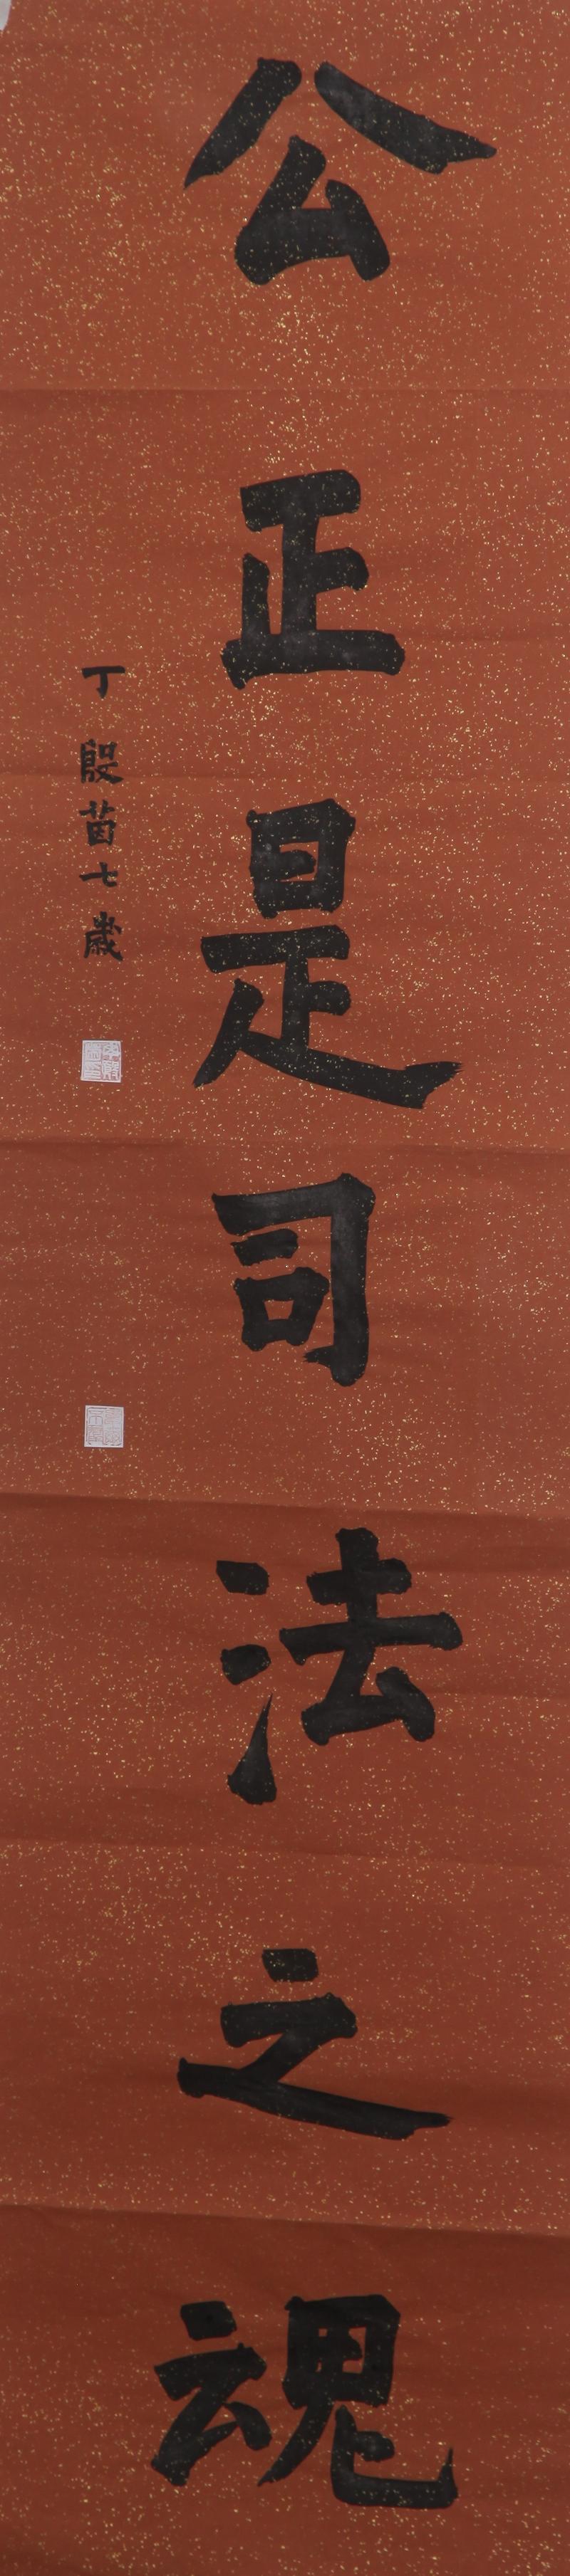 公正是司法之魂
丁殷茵七歲